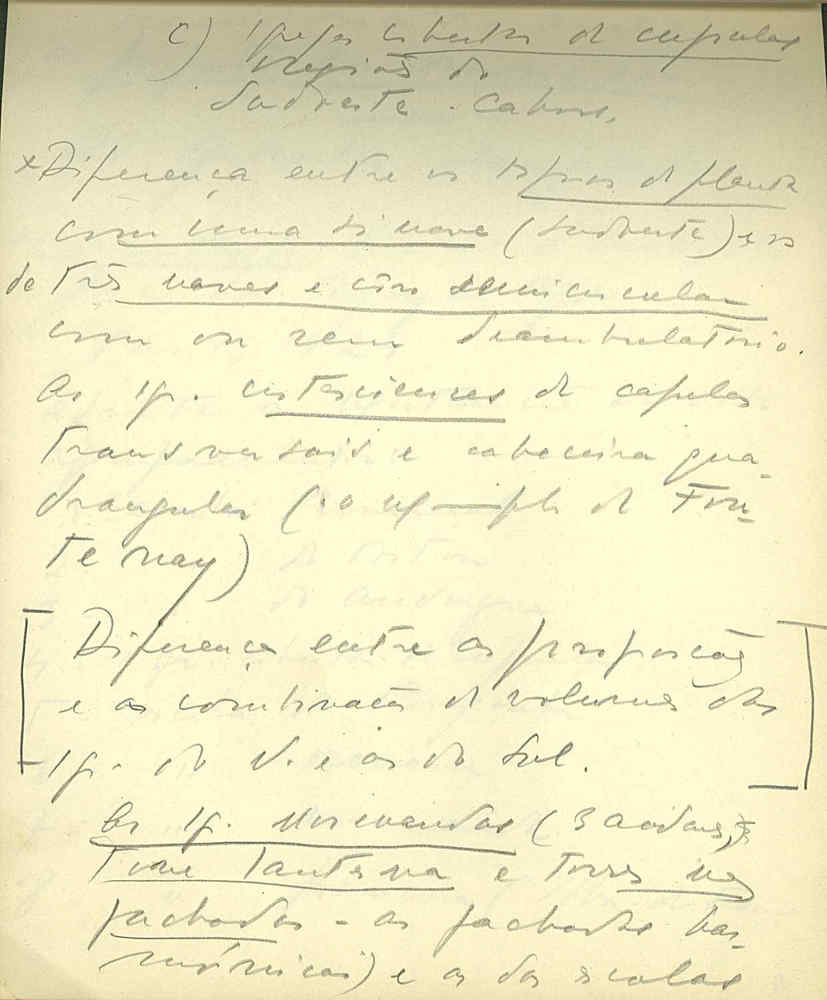 c) Igrejas cobertas de cupulas
região do
Sudoeste. Cahors.
x Diferença entre os tipos de planta
com uma só nave (Sudoeste) e os
de três naves e côro semicircular
com ou sem deambulatorio.
As ig. cistercienses de capelas
transversais e cabeceira qua-
drangular (o exemplo de Fon-
tenay)
[Diferença entre as proporções
e as combinações de volumes das
ig. do N. e as do Sul.]
As ig. Normandas (3 andares,
torre lanterna e torres nas
fachadas - as fachadas har-
mónicas) e as das escolas